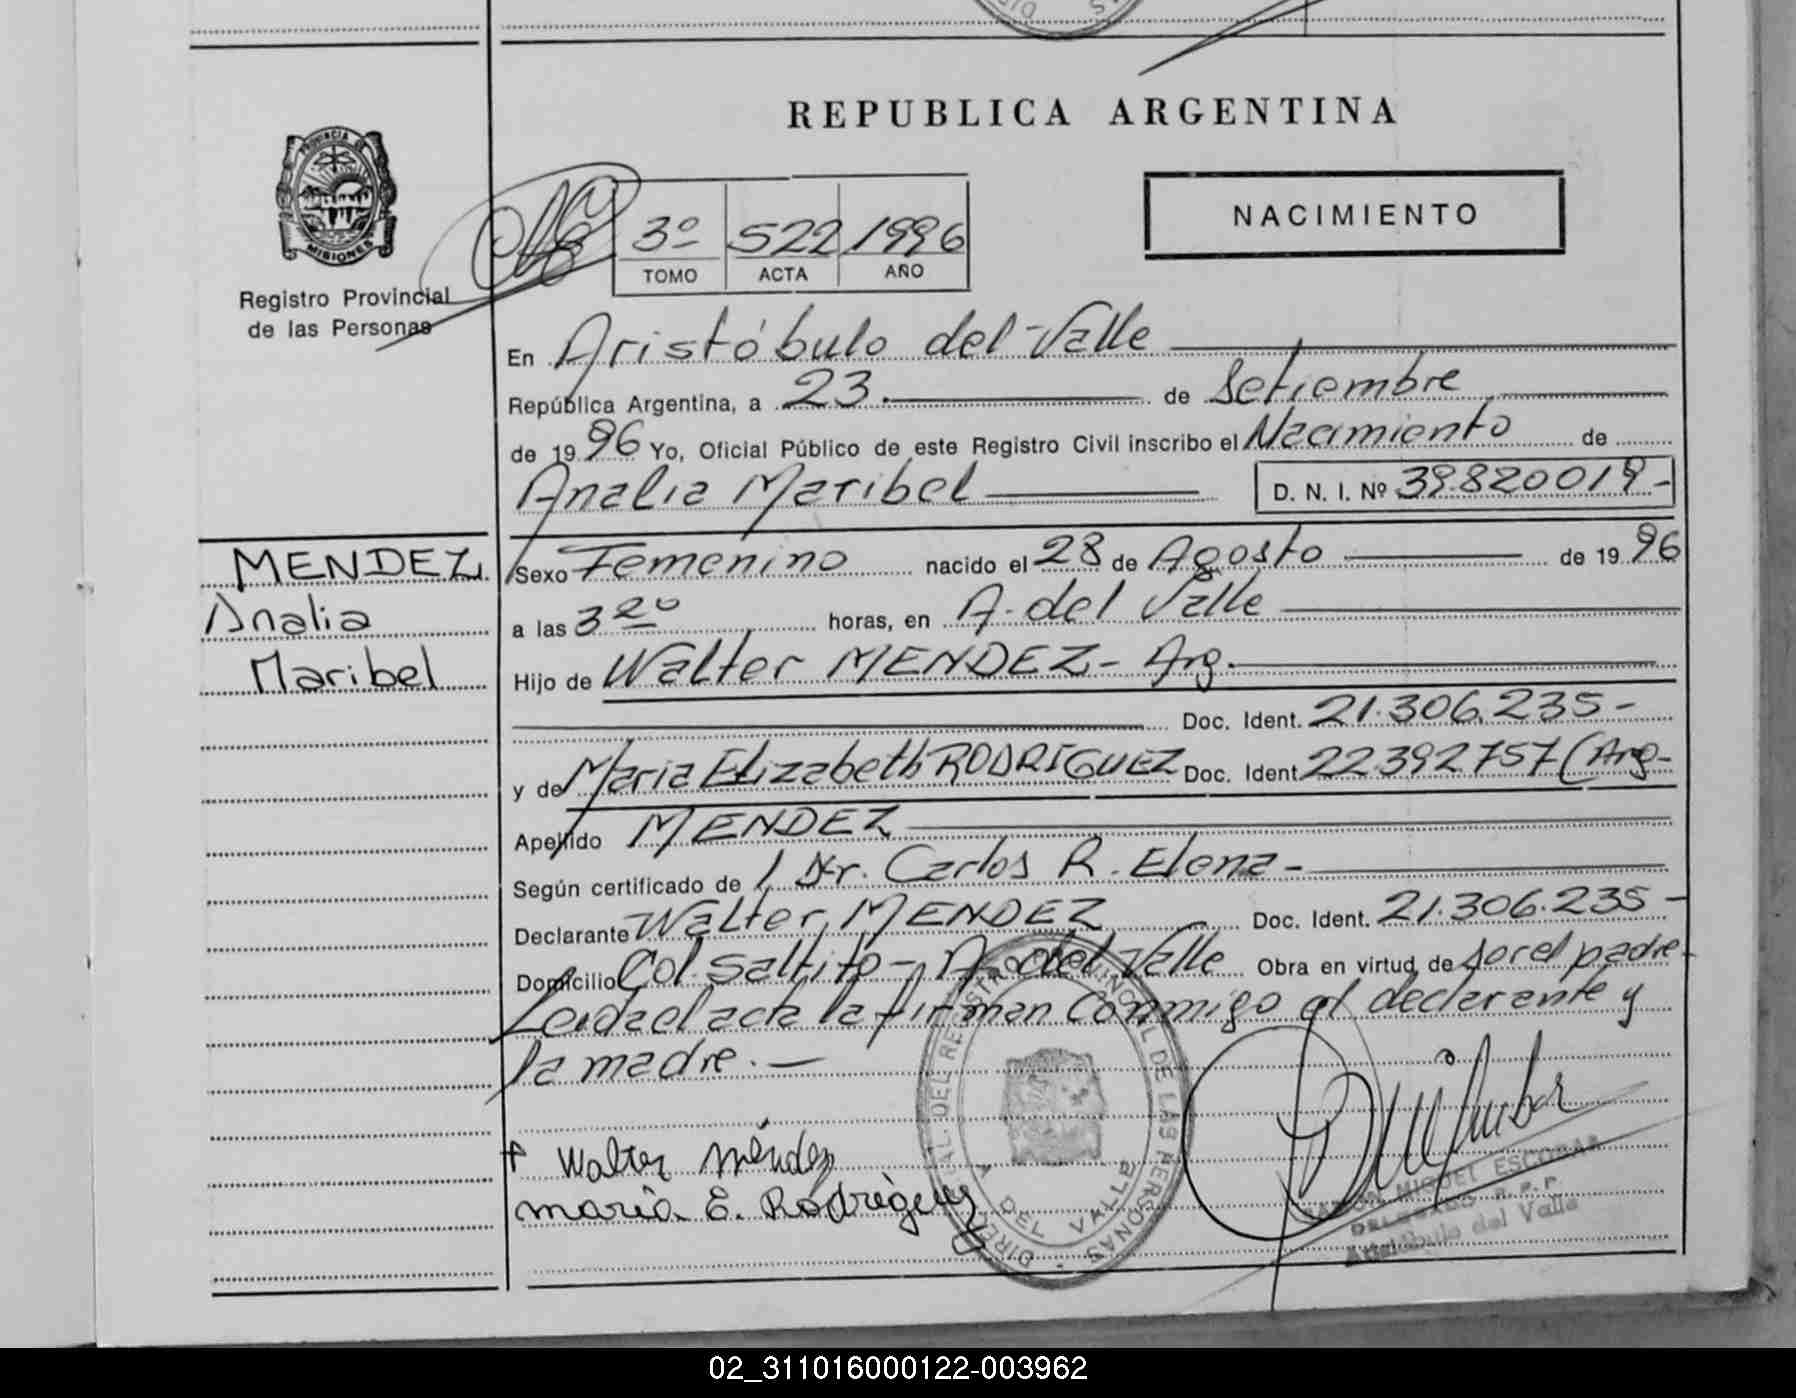 REPUBLICA ARGENTINA
PROVINCIA DE
MISIONES
Registro Provincial
de las Personas
3º 522 1996
TOMO ACTA AÑO
NACIMIENTO
En Aristóbulo del Valle
República Argentina, a 23 de Setiembre
de 1996 Yo, Oficial Público de este Registro Civil inscribo el Nacimiento de
Analia Maribel D. N. I. Nº 39.820019-
MENDEZ
Analia
Maribel
Sexo Femenino nacido el 28 de Agosto de 1996
a las 3 20 horas, en A. del Valle
Hijo de Walter MENDEZ- Arg.
Doc. Ident. 21.306.235-
y de Maria Elizabeth RODRIGUEZ Doc. Ident. 22392757 (Arg-
Apellido MENDEZ
Según certificado de Dr. Carlos R. Elena-
Declarante Walter MENDEZ Doc. Ident. 21.306.235-
Domicilio Col. Saltito- A. del Valle Obra en virtud de ser el padre-
Leida el acta la firman conmigo el declarante y
la madre.-
Walter Méndez
maria E. Rodrigeuz
DEL REGISTRO PROVINCIAL DE LAS PERSONAS
A DEL VALLE
RAMON MIGUEL ESCOBAR
DELEGADO R.P.P.
Aristóbulo del Valle
02_311016000122-003962